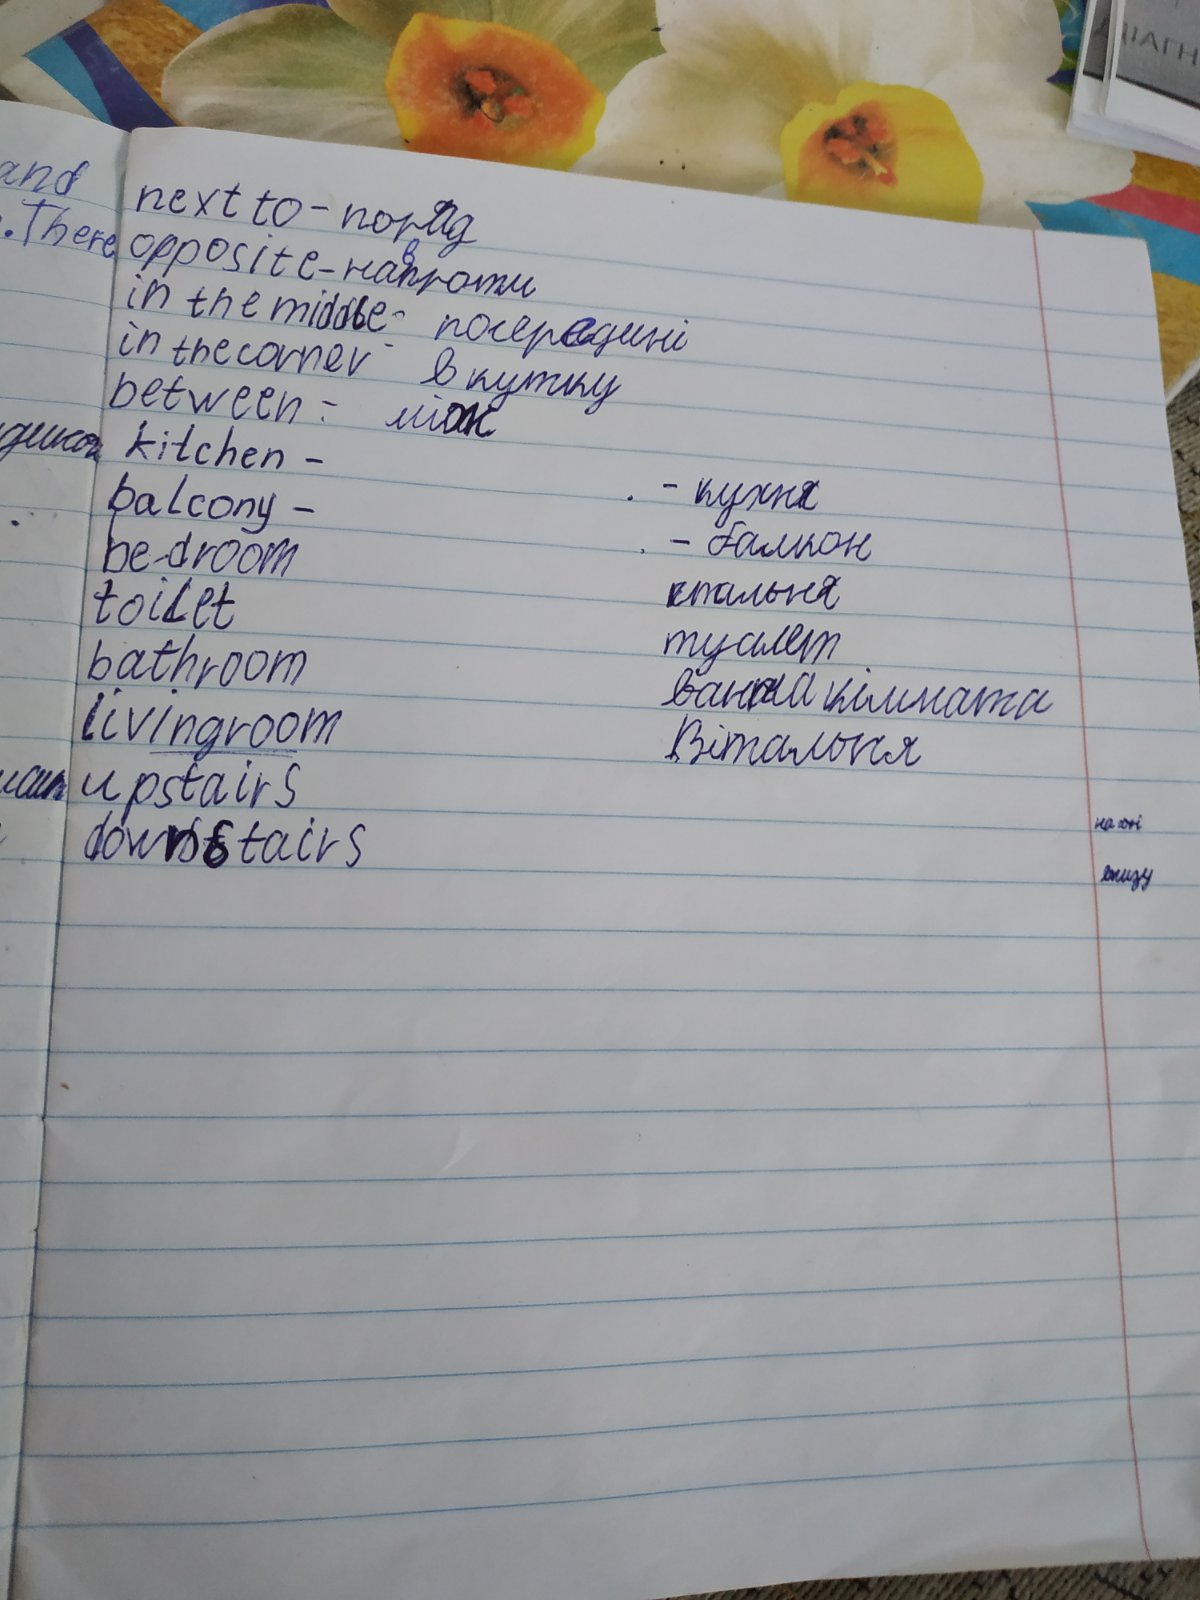 ДІАГН
and
. There
next to - поряд
opposite - навпроти
in the middle - посередині
in the corner - в кутку
between - між
kitchen - - кухня
balcony - - балкон
bedroom спальня
toilet туалет
bathroom ванна кімната
livingroom Вітальня
upstairs
downstairs внизу